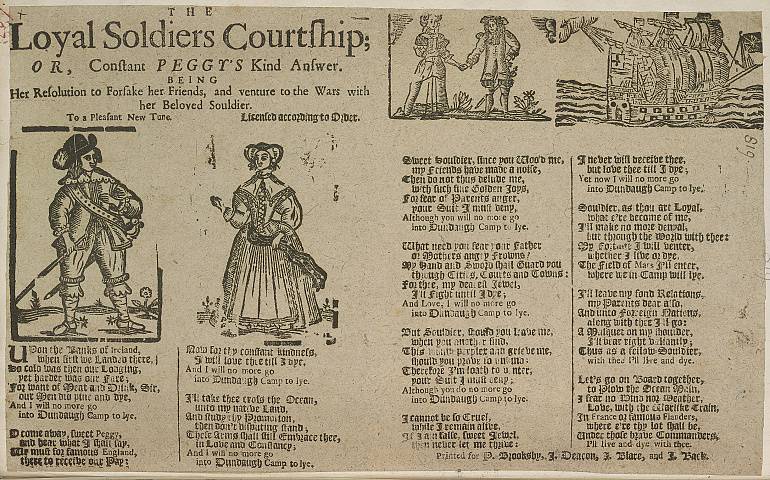 THE
Loyal Soldiers Courtſhip;
OR, Conſtant PEGGY'S Kind Anſwer.
BEING
Her Reſolution to Forſake her Friends, and venture to the Wars with
her Beloved Souldier.
To a Pleaſant New Tune. Licenſed according to Order.
UPon the Banks of Ireland,
when firſt we Landed there,
So cold was then our Lodging,
yet harder was our Fare;
For want of Meat and Drink, Sir,
our Men did pine and dye,
And I will no more go
into Dundaugh Camp to lye.
O come away, ſweet Peggy,
and hear what I ſhall ſay,
We muſt for famous England,
there to receive our Pay:
Now for thy conſtant kindneſs,
I will love thee till I dye,
And I will no more go
into Dundaugh Camp to lye.
I'll take thee croſs the Ocean,
unto my native Land,
And ſtudy thy Promotion,
then don't diſputing ſtand;
Theſe Arms ſhall ſtill Embrace thee,
in Love and Conſtancy;
And I will no more go
into Dundaugh Camp to lye.
Sweet Souldier, ſince you Woo'd me,
my Friends have made a noiſe,
Then do not thus delude me,
with ſuch fine Golden Joys,
For fear of Parents anger,
your Suit I muſt deny,
Although you will no more go
into Dundaugh Camp to lye.
What need you fear your Father
or Mothers angry Frowns?
My Hand and Sword ſhall Guard you
through Cities, Courts and Towns:
For thee, my deareſt Jewel,
I'll Fight until I dye;
And Love, I will no more go
into Dundaugh Camp to lye.
But Souldier, ſhould you leave me,
when you another find,
This would perplex and grieve me,
ſhould you prove ſo unkind:
Therefore I'm loath to venter,
your Suit I muſt deny,
Although you do no more go
into Dundaugh Camp to lye.
I cannot be ſo Cruel,
while I remain alive,
If I am falſe, ſweet Jewel,
then never let me thrive:
I never will deceive thee,
but love thee till I dye;
Yet now I will no more go
into Dundaugh Camp to lye.
Souldier, as thou art Loyal,
what e're become of me,
I'll make no more denyal,
but through the World with thee:
My Fortune I will venter,
whether I live or dye,
The Field of Mars I'll enter,
where we in Camp will lye.
I'll leave my fond Relations,
my Parents dear alſo,
And unto Foreign Nations,
along with thee I'll go:
A Musquet on my ſhoulder,
I'll bear right valiantly;
Thus as a fellow-Souldier,
with thee I'll live and dye.
Let's go on Board together,
to Plow the Ocean Main,
I fear no Wind nor Weather,
Love, with the Warlike Train,
In France or famous Flanders,
where e're thy lot ſhall be,
Under thoſe brave Commanders,
I'll live and dye with thee.
Printed for P. Brooksby, J. Deacon, J. Blare, and J. Back.